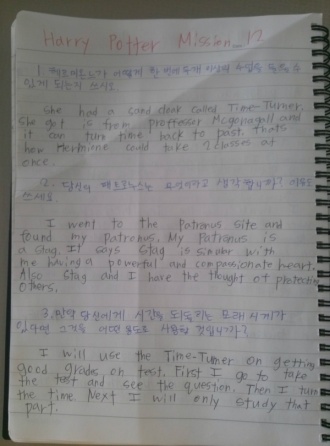 Harry Potter Mission_12
1. 헤르미온느가 어떻게 한 번에 두개 이상의 수업을 들을 수
있게 되는지 쓰시오.
She had a sand clock called Time-Turner.
She got is from proffessor Mcgonagall and
it can turn time back to past. thats
how Hermiene could take 2 classes at
once.
2. 당신의 패트로누스는 무엇이라고 생각합니까? 이유도
쓰세요.
I went to the Patronus site and
found my patronus. My Patronus is
a stag. It says stag is similar with
me having a powerful and compassionate heart.
Also stag and I have the thought of protecting
others.
3. 만약 당신에게 시간을 되돌리는 모래 시계가
있다면 그것을 어떤 용도로 사용할 것입니까?
I will use the Time-Turner on getting
good grades on test. First I go to take
the test and see the question. Then I turn
the time. Next I will only study that
part.